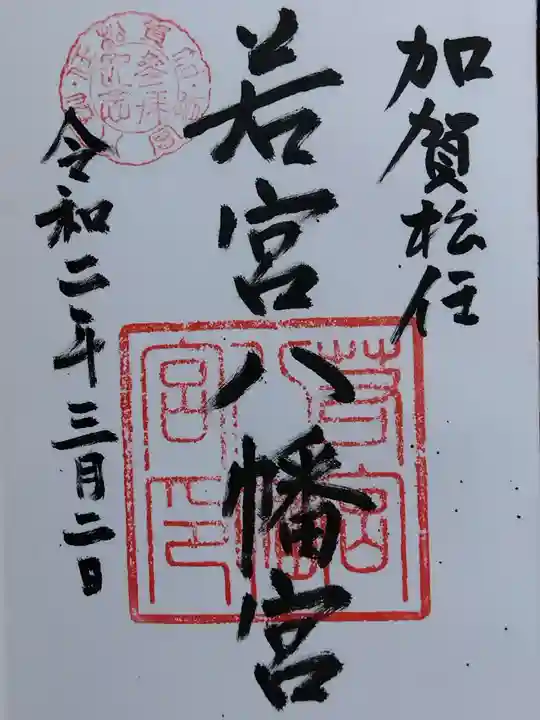 加賀松任
若宮八幡宮
令和二年三月二日
若宮八幡宮印